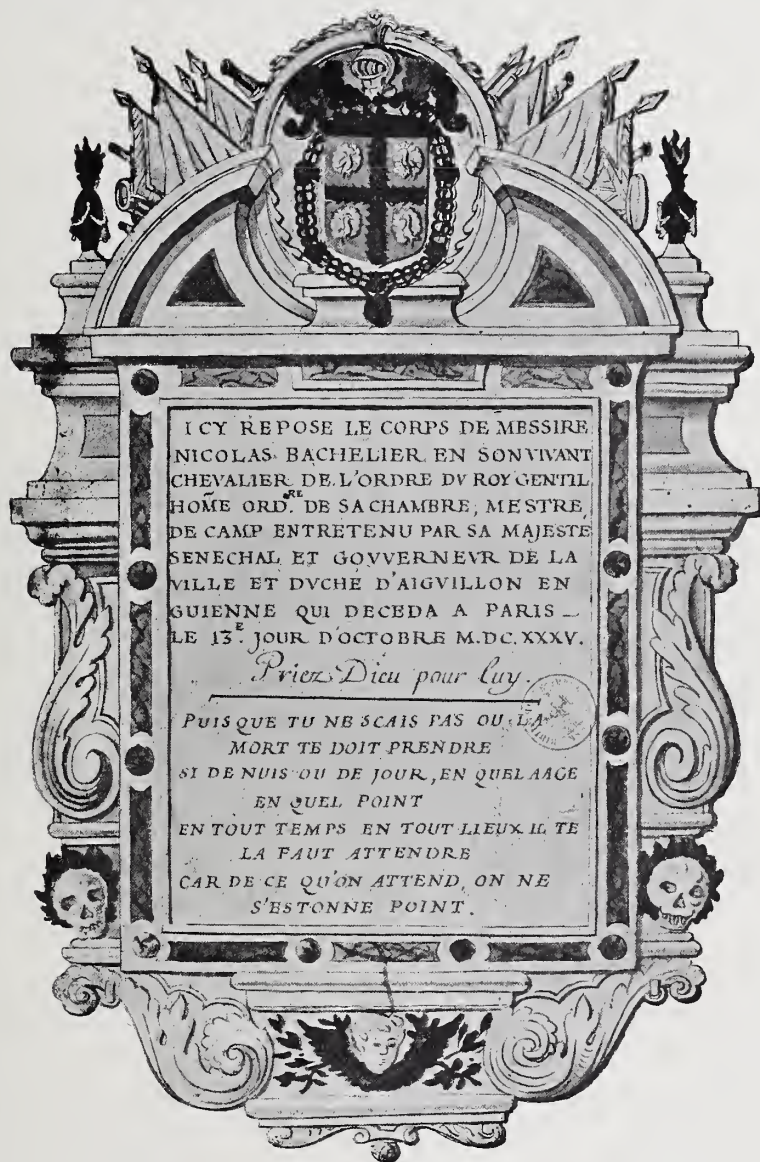 ICY REPOSE LE CORPS DE MESSIRE
NICOLAS BACHELIER EN SON VIVANT
CHEVALIER DE L'ORDRE DV ROY GENTIL
HOM̃E ORD.RE DE SA CHAMBRE, MESTRE
DE CAMP ENTRETENU PAR SA MAJESTE
SENECHAL ET GOVVERNEVR DE LA
VILLE ET DVCHE D'AIGVILLON EN
GUIENNE QUI DECEDA A PARIS _
LE 13.E JOUR D'OCTOBRE M.DC.XXXV.
Priez Dieu pour luy.
PUIS QUE TU NE SCAIS PAS OU LA
MORT TE DOIT PRENDRE
SI DE NUIS OU DE JOUR, EN QUEL AAGE
EN QUEL POINT
EN TOUT TEMPS EN TOUT LIEUX IL TE
LA FAUT ATTENDRE
CAR DE CE QU'ON ATTEND, ON NE
S'ESTONNE POINT.